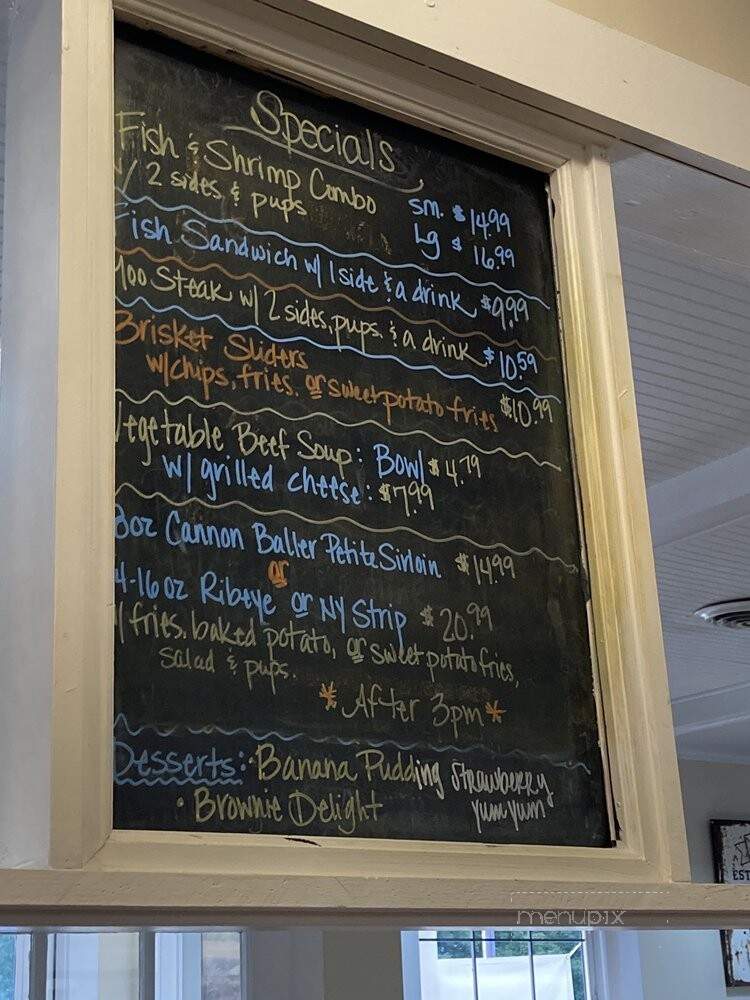 Specials
Fish & Shrimp Combo
w/ 2 sides & pups
sm. $14.99
Lg $ 16.99
Fish Sandwich w/ 1 side & a drink $9.99
Moo Steak w/ 2 sides, pups & a drink $10.59
Brisket Sliders
w/chips, fries, or sweet potato fries $10.99
Vegetable Beef Soup: Bowl $4.79
w/ grilled cheese: $7.99
8oz Cannon Baller Petite Sirloin $14.99
or
14-16oz Ribeye or NY Strip $20.99
w/ fries, baked potato, or sweet potato fries,
Salad & pups.
*After 3pm*
Desserts: • Banana Pudding Strawberry
• Brownie Delight Yum Yum
EST
menupix